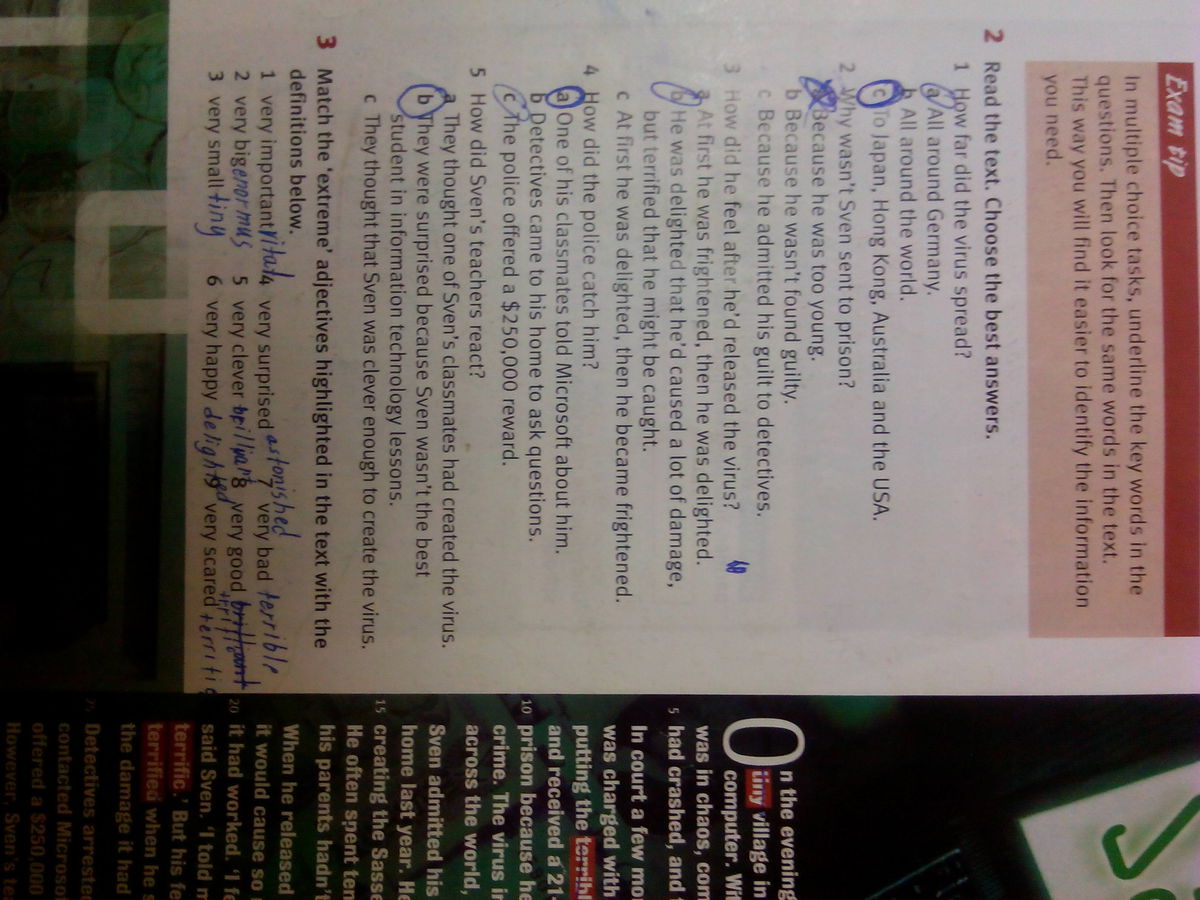 Exam tip
In multiple choice tasks, underline the key words in the
questions. Then look for the same words in the text.
This way you will find it easier to identify the information
you need.
2 Read the text. Choose the best answers.
1 How far did the virus spread?
a All around Germany.
b All around the world.
c To Japan, Hong Kong, Australia and the USA.
2 Why wasn't Sven sent to prison?
a Because he was too young.
b Because he wasn't found guilty.
c Because he admitted his guilt to detectives.
3 How did he feel after he'd released the virus?
a At first he was frightened, then he was delighted.
b He was delighted that he'd caused a lot of damage,
but terrified that he might be caught.
c At first he was delighted, then he became frightened.
4 How did the police catch him?
a One of his classmates told Microsoft about him.
b Detectives came to his home to ask questions.
c The police offered a $250,000 reward.
5 How did Sven's teachers react?
a They thought one of Sven's classmates had created the virus.
b They were surprised because Sven wasn't the best
student in information technology lessons.
c They thought that Sven was clever enough to create the virus.
3 Match the 'extreme' adjectives highlighted in the text with the
definitions below.
1 very important 4 very surprised astonished 7 very bad terrible
2 very big enormus 5 very clever brilliant 8 very good brilliant
3 very small tiny 6 very happy delighted 9 very scared
On the evening
tiny village in
computer. Wit
was in chaos, com
5 had crashed, and t
In court a few mo
was charged with
putting the terribl
and received a 21-
10 prison because he
crime. The virus in
across the world,
Sven admitted his
home last year. He
15 creating the Sasse
He often spent ten
his parents hadn't
When he released
it would cause so
20 it had worked. 'I fe
said Sven. 'I told m
terrific.' But his fe
terrified when he s
the damage it had
Detectives arreste
contacted Microsof
offered a $250,000
However, Sven's te